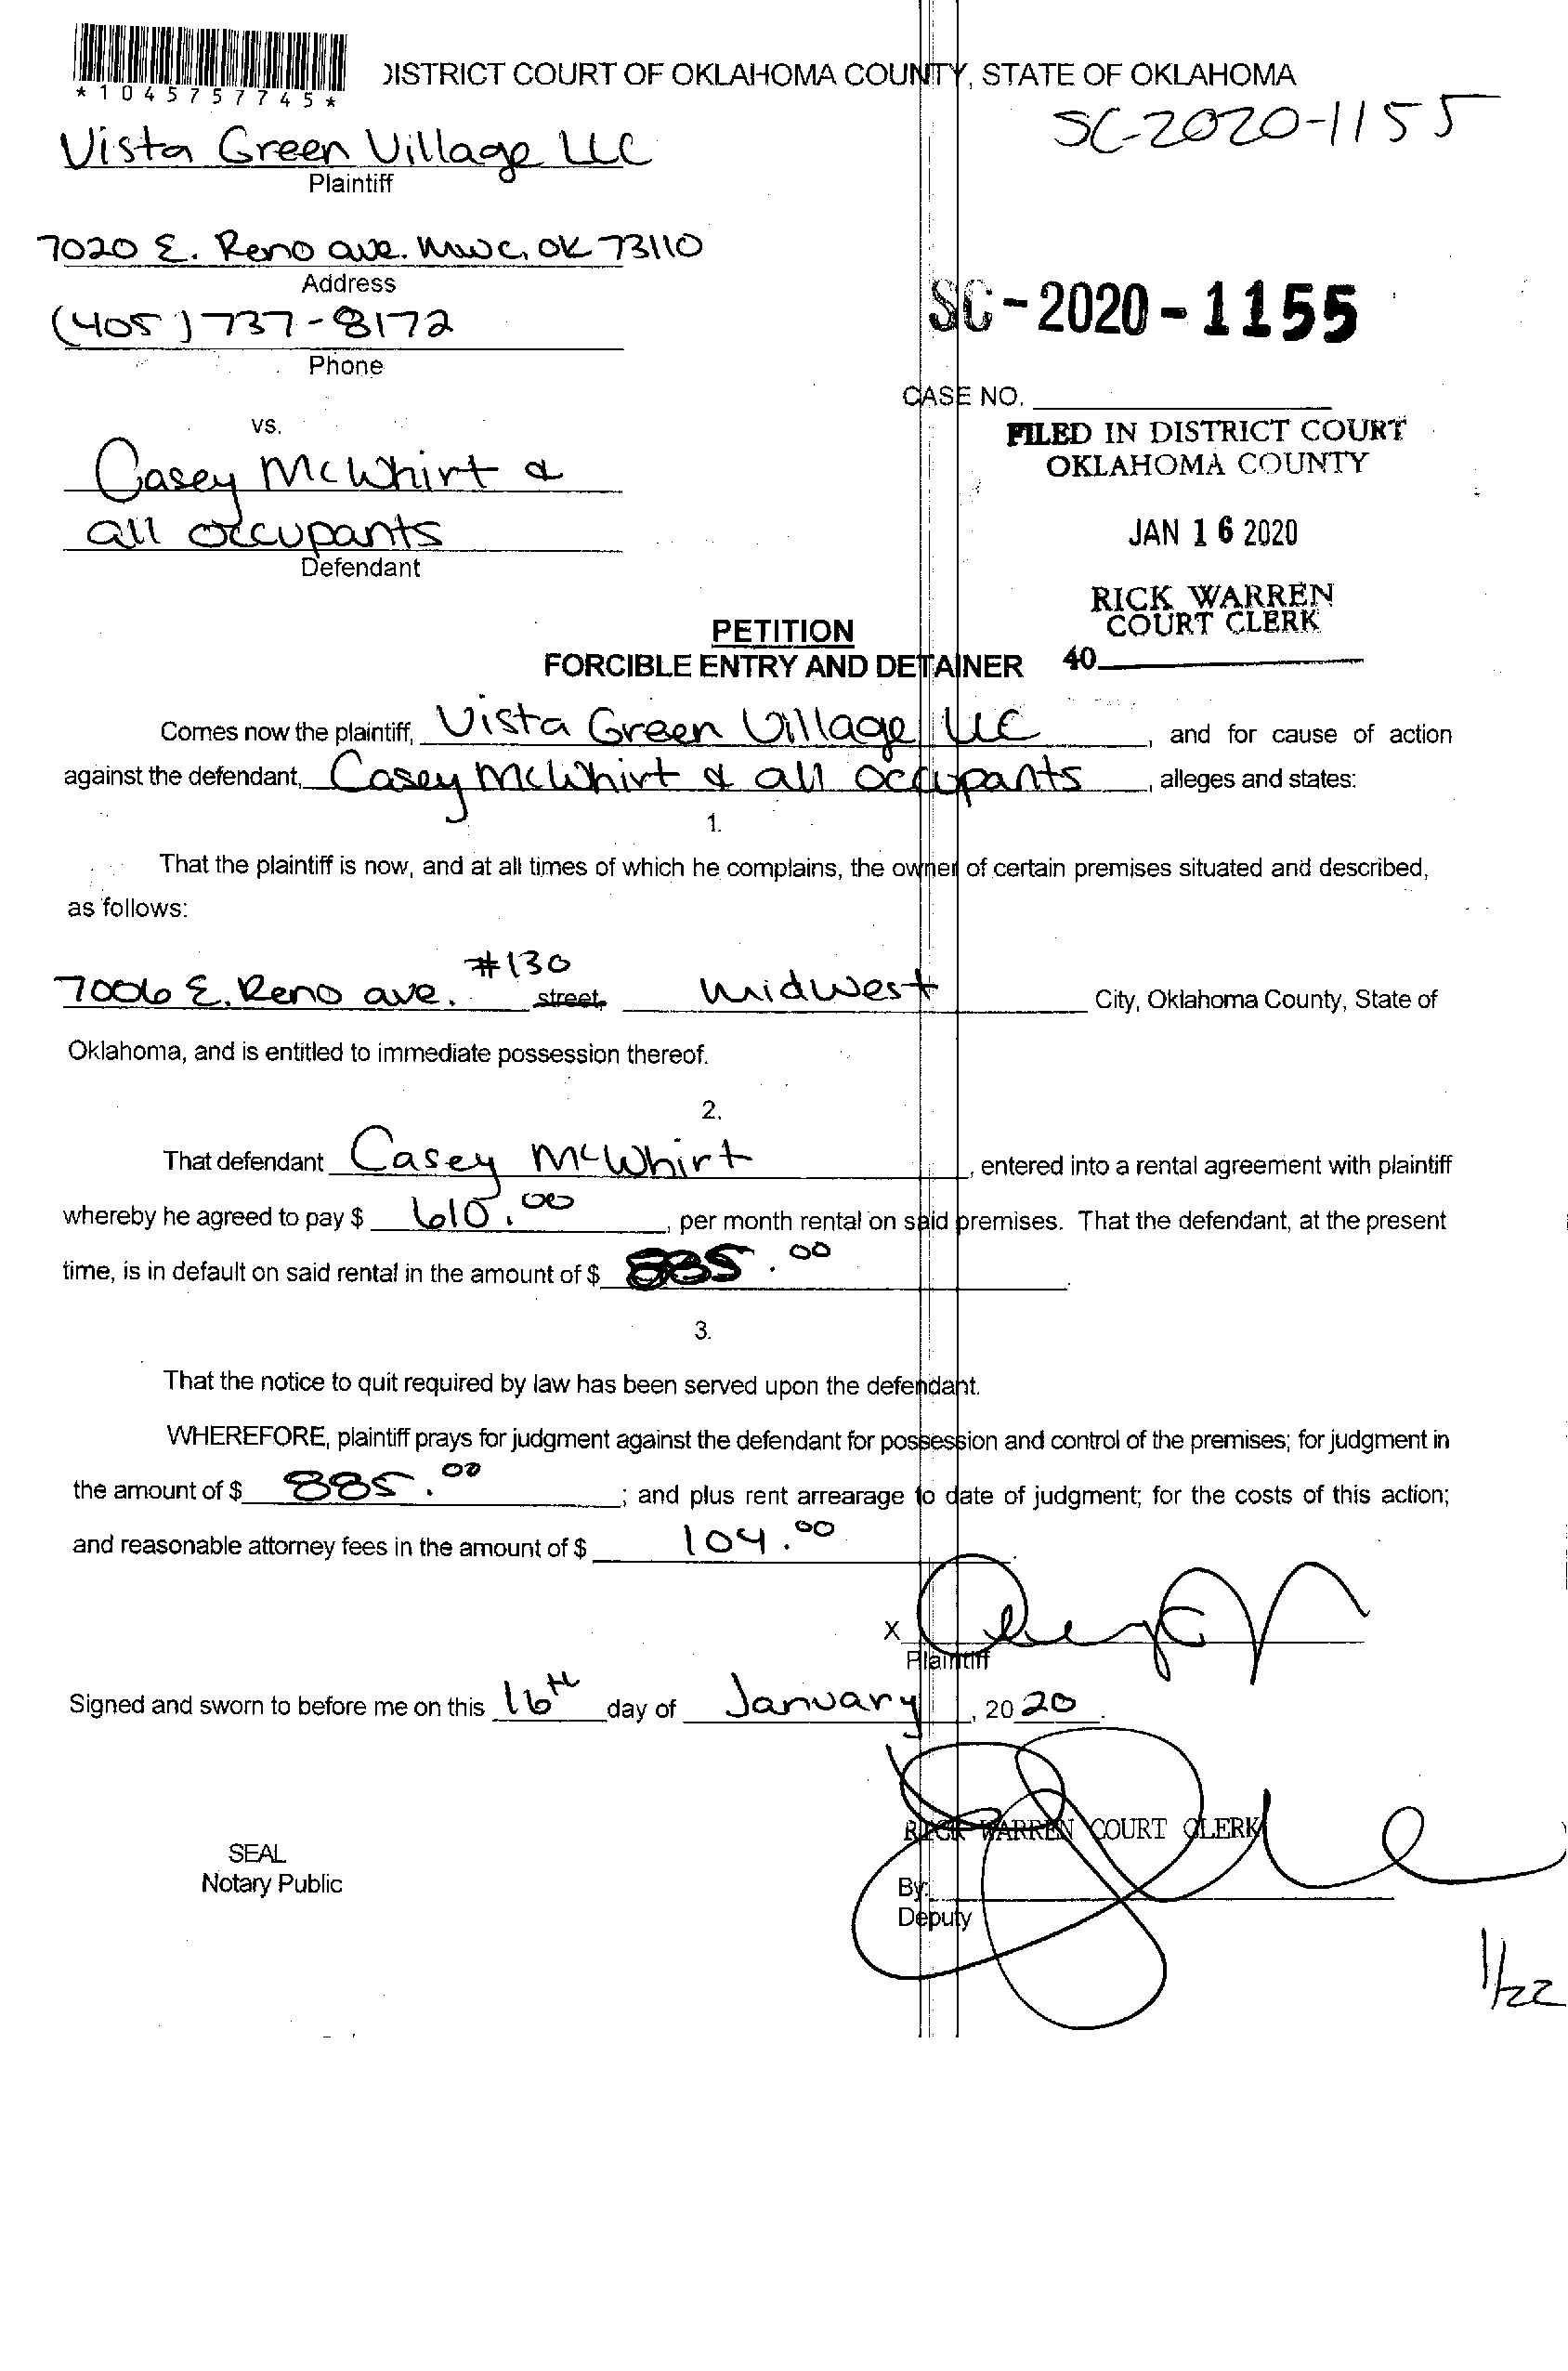 *1045757745*
DISTRICT COURT OF OKLAHOMA COUNTY, STATE OF OKLAHOMA
SC-2020-1155
Vista Green Village LLC
Plaintiff
7020 E. Reno ave. MWC, OK 73110
Address
(405) 737-8172
Phone
SC-2020-1155
CASE NO.
vs.
FILED IN DISTRICT COURT
OKLAHOMA COUNTY
Casey McWhirt &
all occupants
Defendant
JAN 16 2020
RICK WARREN
COURT CLERK
40
PETITION
FORCIBLE ENTRY AND DETAINER
Comes now the plaintiff, Vista Green Village LLC, and for cause of action
against the defendant, Casey McWhirt & all occupants, alleges and states:
1.
That the plaintiff is now, and at all times of which he complains, the owner of certain premises situated and described,
as follows:
7006 E. Reno ave. #130 street, Midwest City, Oklahoma County, State of
Oklahoma, and is entitled to immediate possession thereof.
2.
That defendant Casey McWhirt, entered into a rental agreement with plaintiff
whereby he agreed to pay $ 610.00, per month rental on said premises. That the defendant, at the present
time, is in default on said rental in the amount of $ 885.00.
3.
That the notice to quit required by law has been served upon the defendant.
WHEREFORE, plaintiff prays for judgment against the defendant for possession and control of the premises; for judgment in
the amount of $ 885.00; and plus rent arrearage to date of judgment; for the costs of this action;
and reasonable attorney fees in the amount of $ 104.00.
X
Plaintiff
Signed and sworn to before me on this 16th day of January, 2020.
RICK WARREN COURT CLERK
SEAL
Notary Public
By:
Deputy
1/22